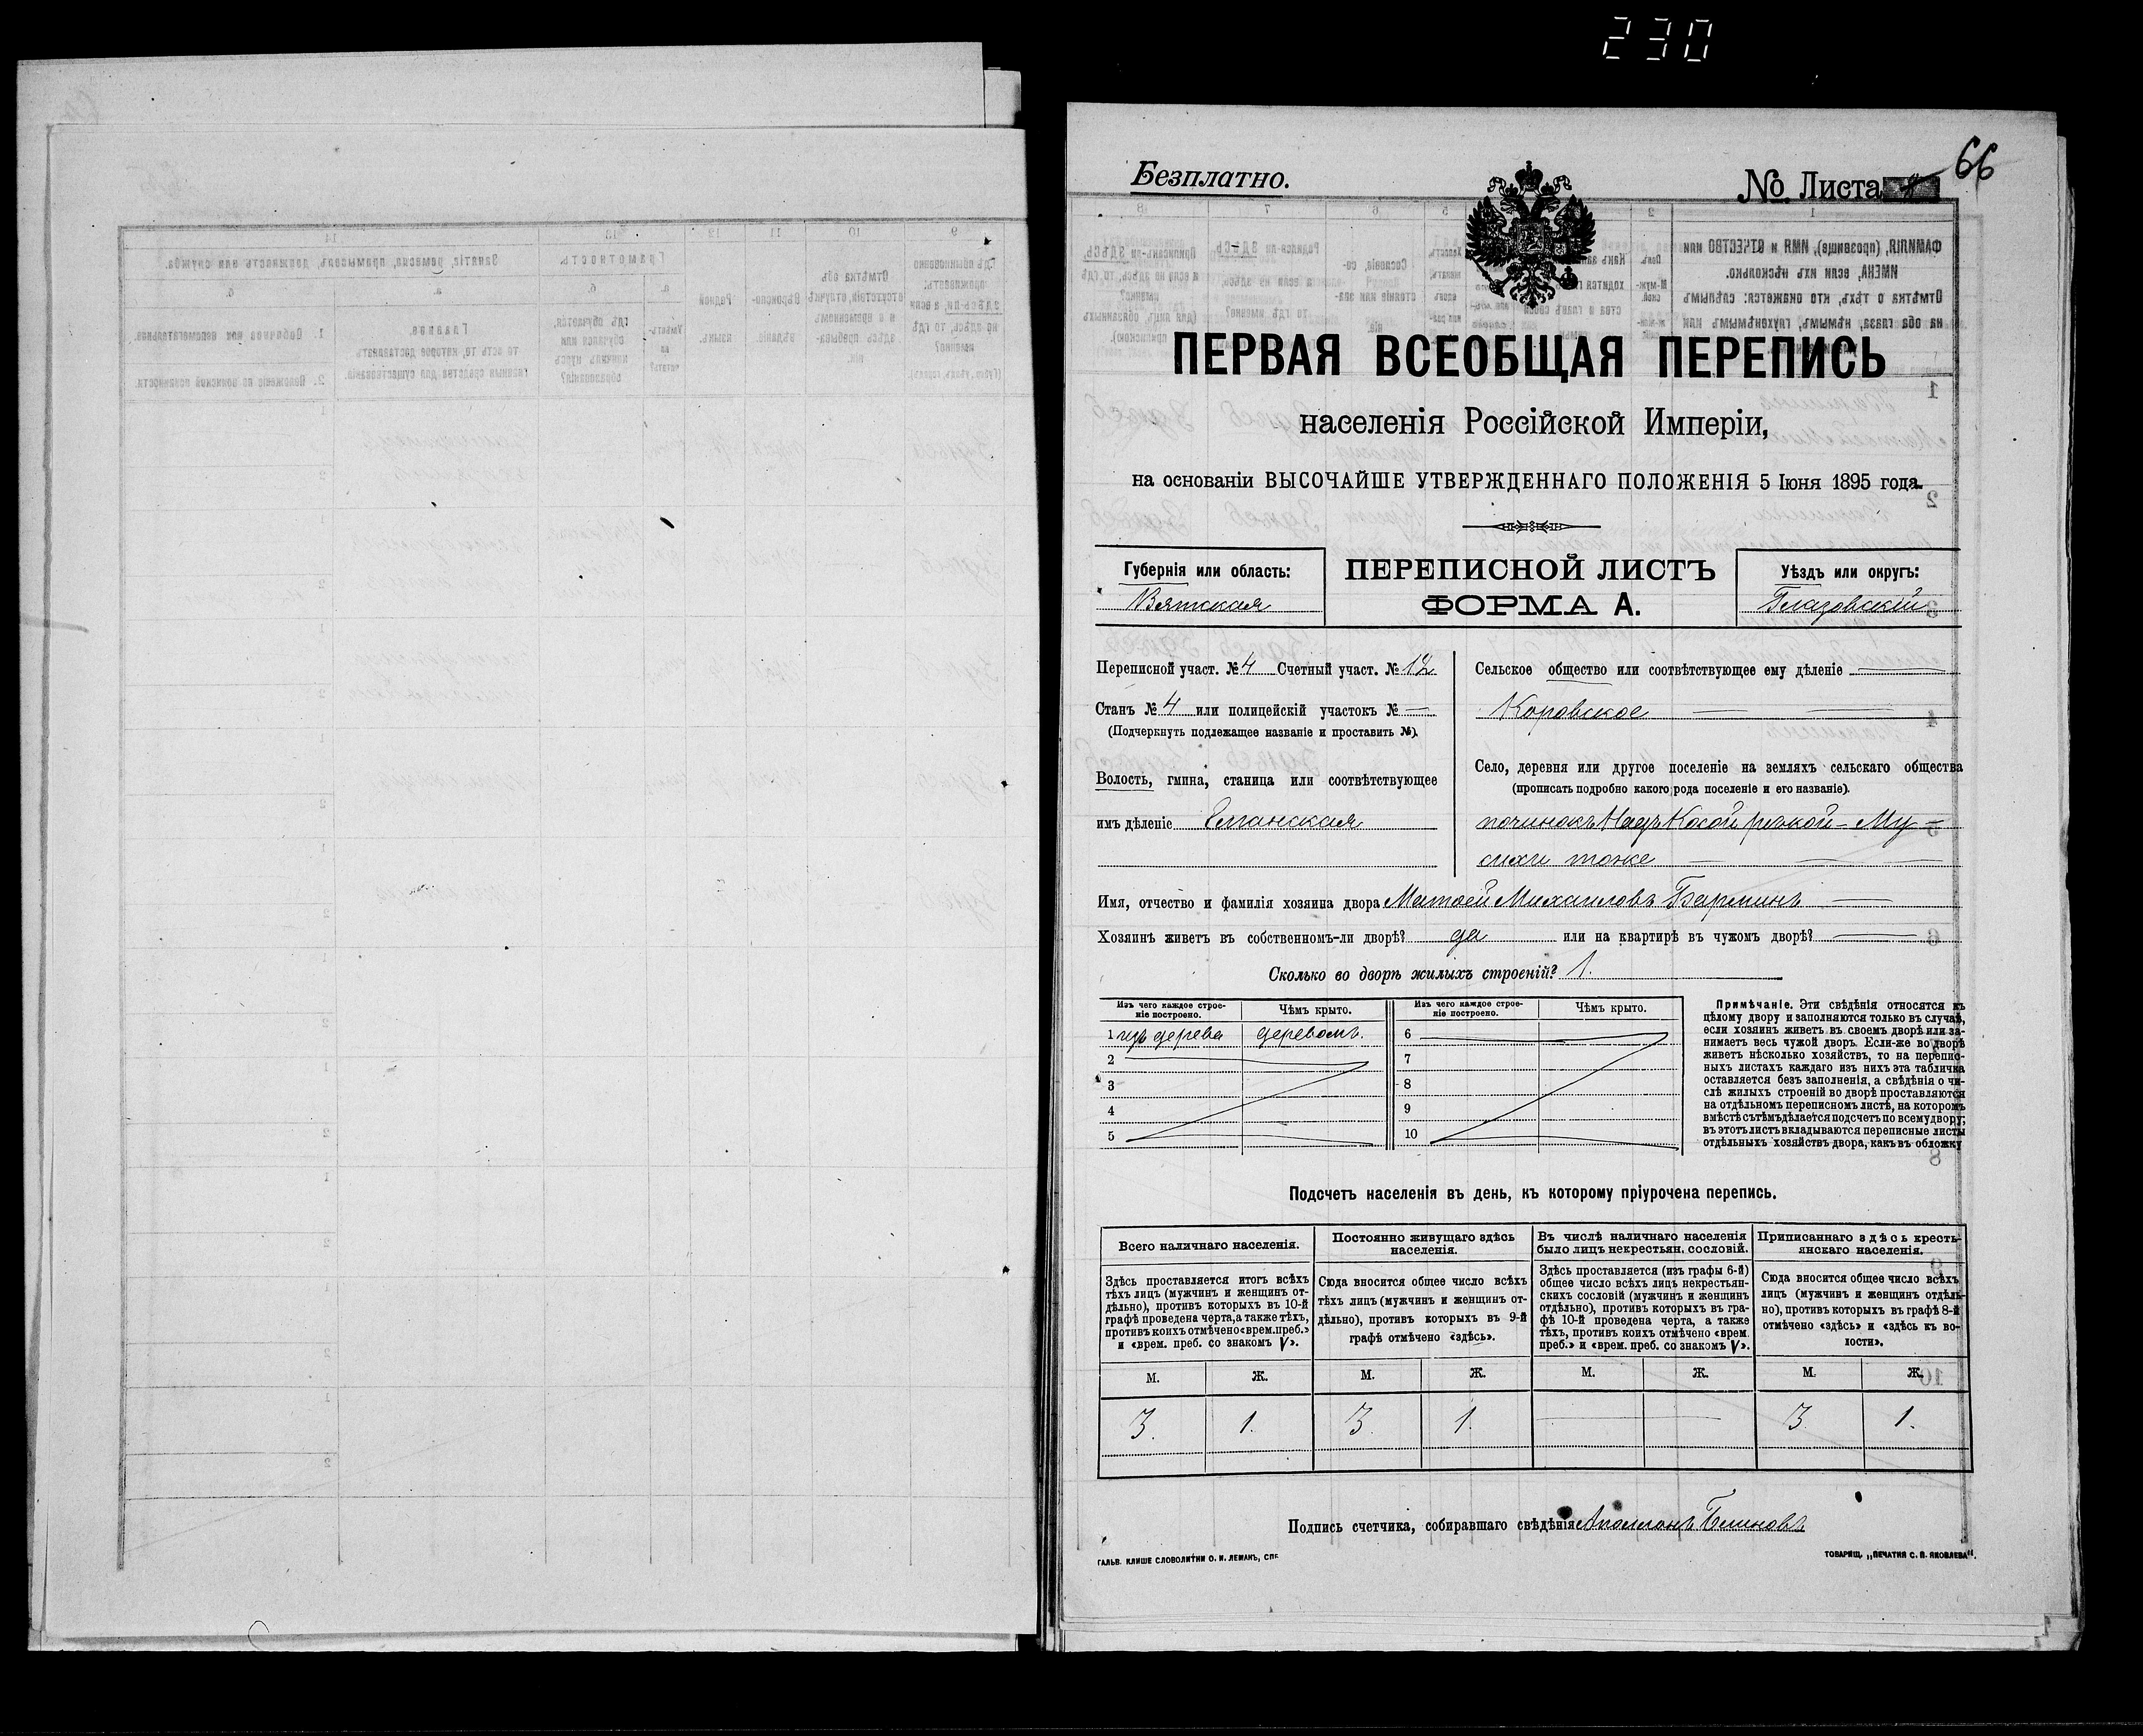 230
66
Безплатно.
№ Листа
ПЕРВАЯ ВСЕОБЩАЯ ПЕРЕПИСЬ
населенія Россійской Имперіи,
на основаніи ВЫСОЧАЙШЕ УТВЕРЖДЕННАГО ПОЛОЖЕНІЯ 5 Іюня 1895 года.
Губернія или область:
Вятская
ПЕРЕПИСНОЙ ЛИСТЪ
ФОРМА А.
Уѣздъ или округъ:
Глазовскій
Переписной участ. № 4 Счетный участ. № 12
Станъ № 4 или полицейскій участокъ № —
(Подчеркнуть подлежащее названіе и проставить №).
Волость, гмина, станица или соотвѣтствующее
имъ дѣленіе Елганская
Сельское общество или соотвѣтствующее ему дѣленіе —
Коровское — —
Село, деревня или другое поселеніе на земляхъ сельскаго общества
(прописать подробно какого рода поселеніе и его названіе).
починокъ Надъ Косой рѣчкой - Му-
сихи тоже — — —
Имя, отчество и фамилія хозяина двора Матвей Михаиловъ Барминъ —
Хозяинъ живетъ въ собственномъ-ли дворѣ? да или на квартирѣ въ чужомъ дворѣ? —
Сколько во дворѣ жилыхъ строеній? 1.
Изъ чего каждое строе-
ніе построено.
Чѣмъ крыто.
Изъ чего каждое строе-
ніе построено.
Чѣмъ крыто.
1 изъ дерева деревомъ. 6
2 7
3 8
4 9
5 10
Примѣчаніе. Эти свѣдѣнія относятся къ
цѣлому двору и заполняются только въ случаѣ,
если хозяинъ живетъ въ своемъ дворѣ или за-
нимаетъ весь чужой дворъ. Если-же во дворѣ
живетъ нѣсколько хозяйствъ, то на перепис-
ныхъ листахъ каждаго изъ нихъ эта табличка
оставляется безъ заполненія, а свѣдѣнія о чи-
слѣ жилыхъ строеній во дворѣ проставляются
на отдѣльномъ переписномъ листѣ, на которомъ
вмѣстѣ съ тѣмъ дѣлается подсчетъ по всему двору;
въ этотъ листъ вкладываются переписные листы
отдѣльныхъ хозяйствъ двора, какъ въ обложку
Подсчетъ населенія въ день, къ которому пріурочена перепись.
Всего наличнаго населенія.
Здѣсь проставляется итогъ всѣхъ
тѣхъ лицъ (мужчинъ и женщинъ от-
дѣльно), противъ которыхъ въ 10-й
графѣ проведена черта, а также тѣхъ,
противъ коихъ отмѣчено «врем. преб.»
и «врем. преб. со знакомъ V».
Постоянно живущаго здѣсь
населенія.
Сюда вносится общее число всѣхъ
тѣхъ лицъ (мужчинъ и женщинъ от-
дѣльно), противъ которыхъ въ 9-й
графѣ отмѣчено «здѣсь».
Въ числѣ наличнаго населенія
было лицъ некрестьян. сословій.
Здѣсь проставляется (изъ графы 6-й)
общее число всѣхъ лицъ некрестьян-
скихъ сословій (мужчинъ и женщинъ
отдѣльно), противъ которыхъ въ гра-
фѣ 10-й проведена черта, а также
тѣхъ, противъ коихъ отмѣчено «врем.
преб.» и «врем. преб. со знакомъ V».
Приписаннаго здѣсь кресть-
янскаго населенія.
Сюда вносится общее число всѣхъ
лицъ (мужчинъ и женщинъ отдѣль-
но), противъ которыхъ въ графѣ 8-й
отмѣчено «здѣсь» и «здѣсь къ во-
лости».
М. Ж. М. Ж. М. Ж. М. Ж.
3. 1. 3. 1. — — 3. 1.
Подпись счетчика, собиравшаго свѣдѣнія Аполлонъ Блиновъ
ГАЛЬВ. КЛИШЕ СЛОВОЛИТНИ О. И. ЛЕМАНЪ, СПБ
ТОВАРИЩ. „ПЕЧАТНЯ С. П. ЯКОВЛЕВА“.